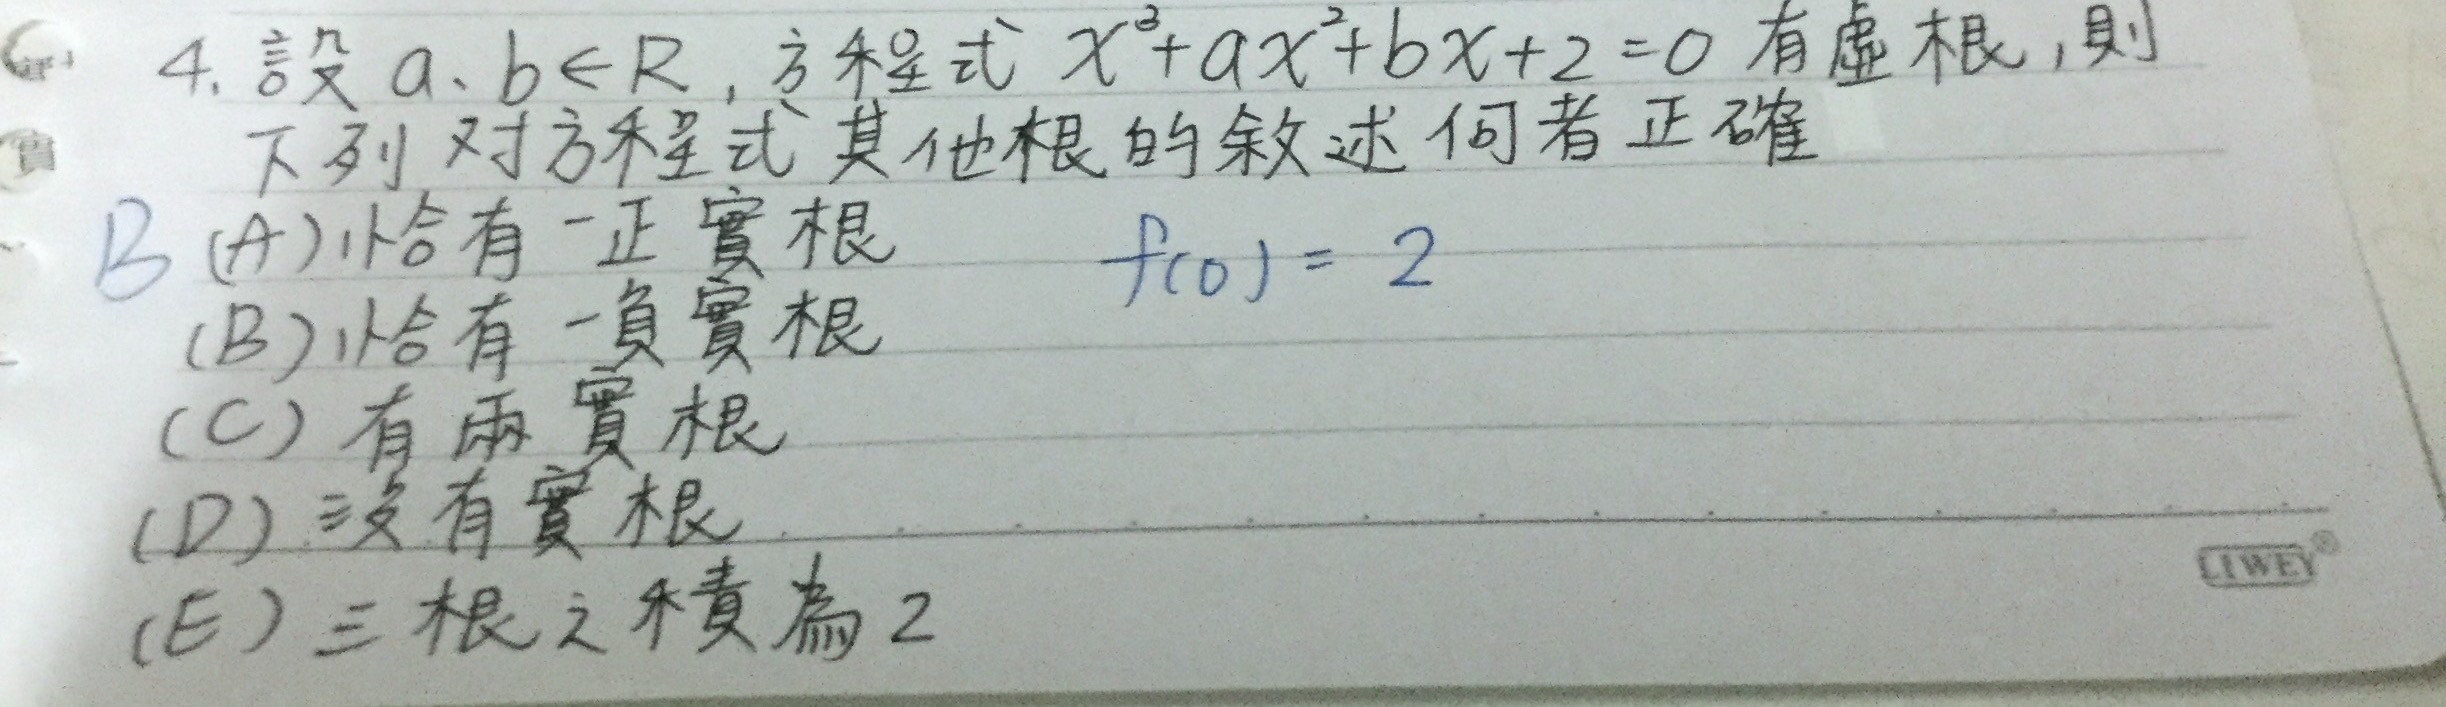 4. 設 a、b∈R, 方程式 x³+ax²+bx+2=0 有虛根, 則
下列对方程式其他根的敘述何者正確
B (A) 恰有一正實根 f(0) = 2
(B) 恰有一負實根
(C) 有兩實根
(D) 沒有實根
(E) 三根之積為2
LIWEY®